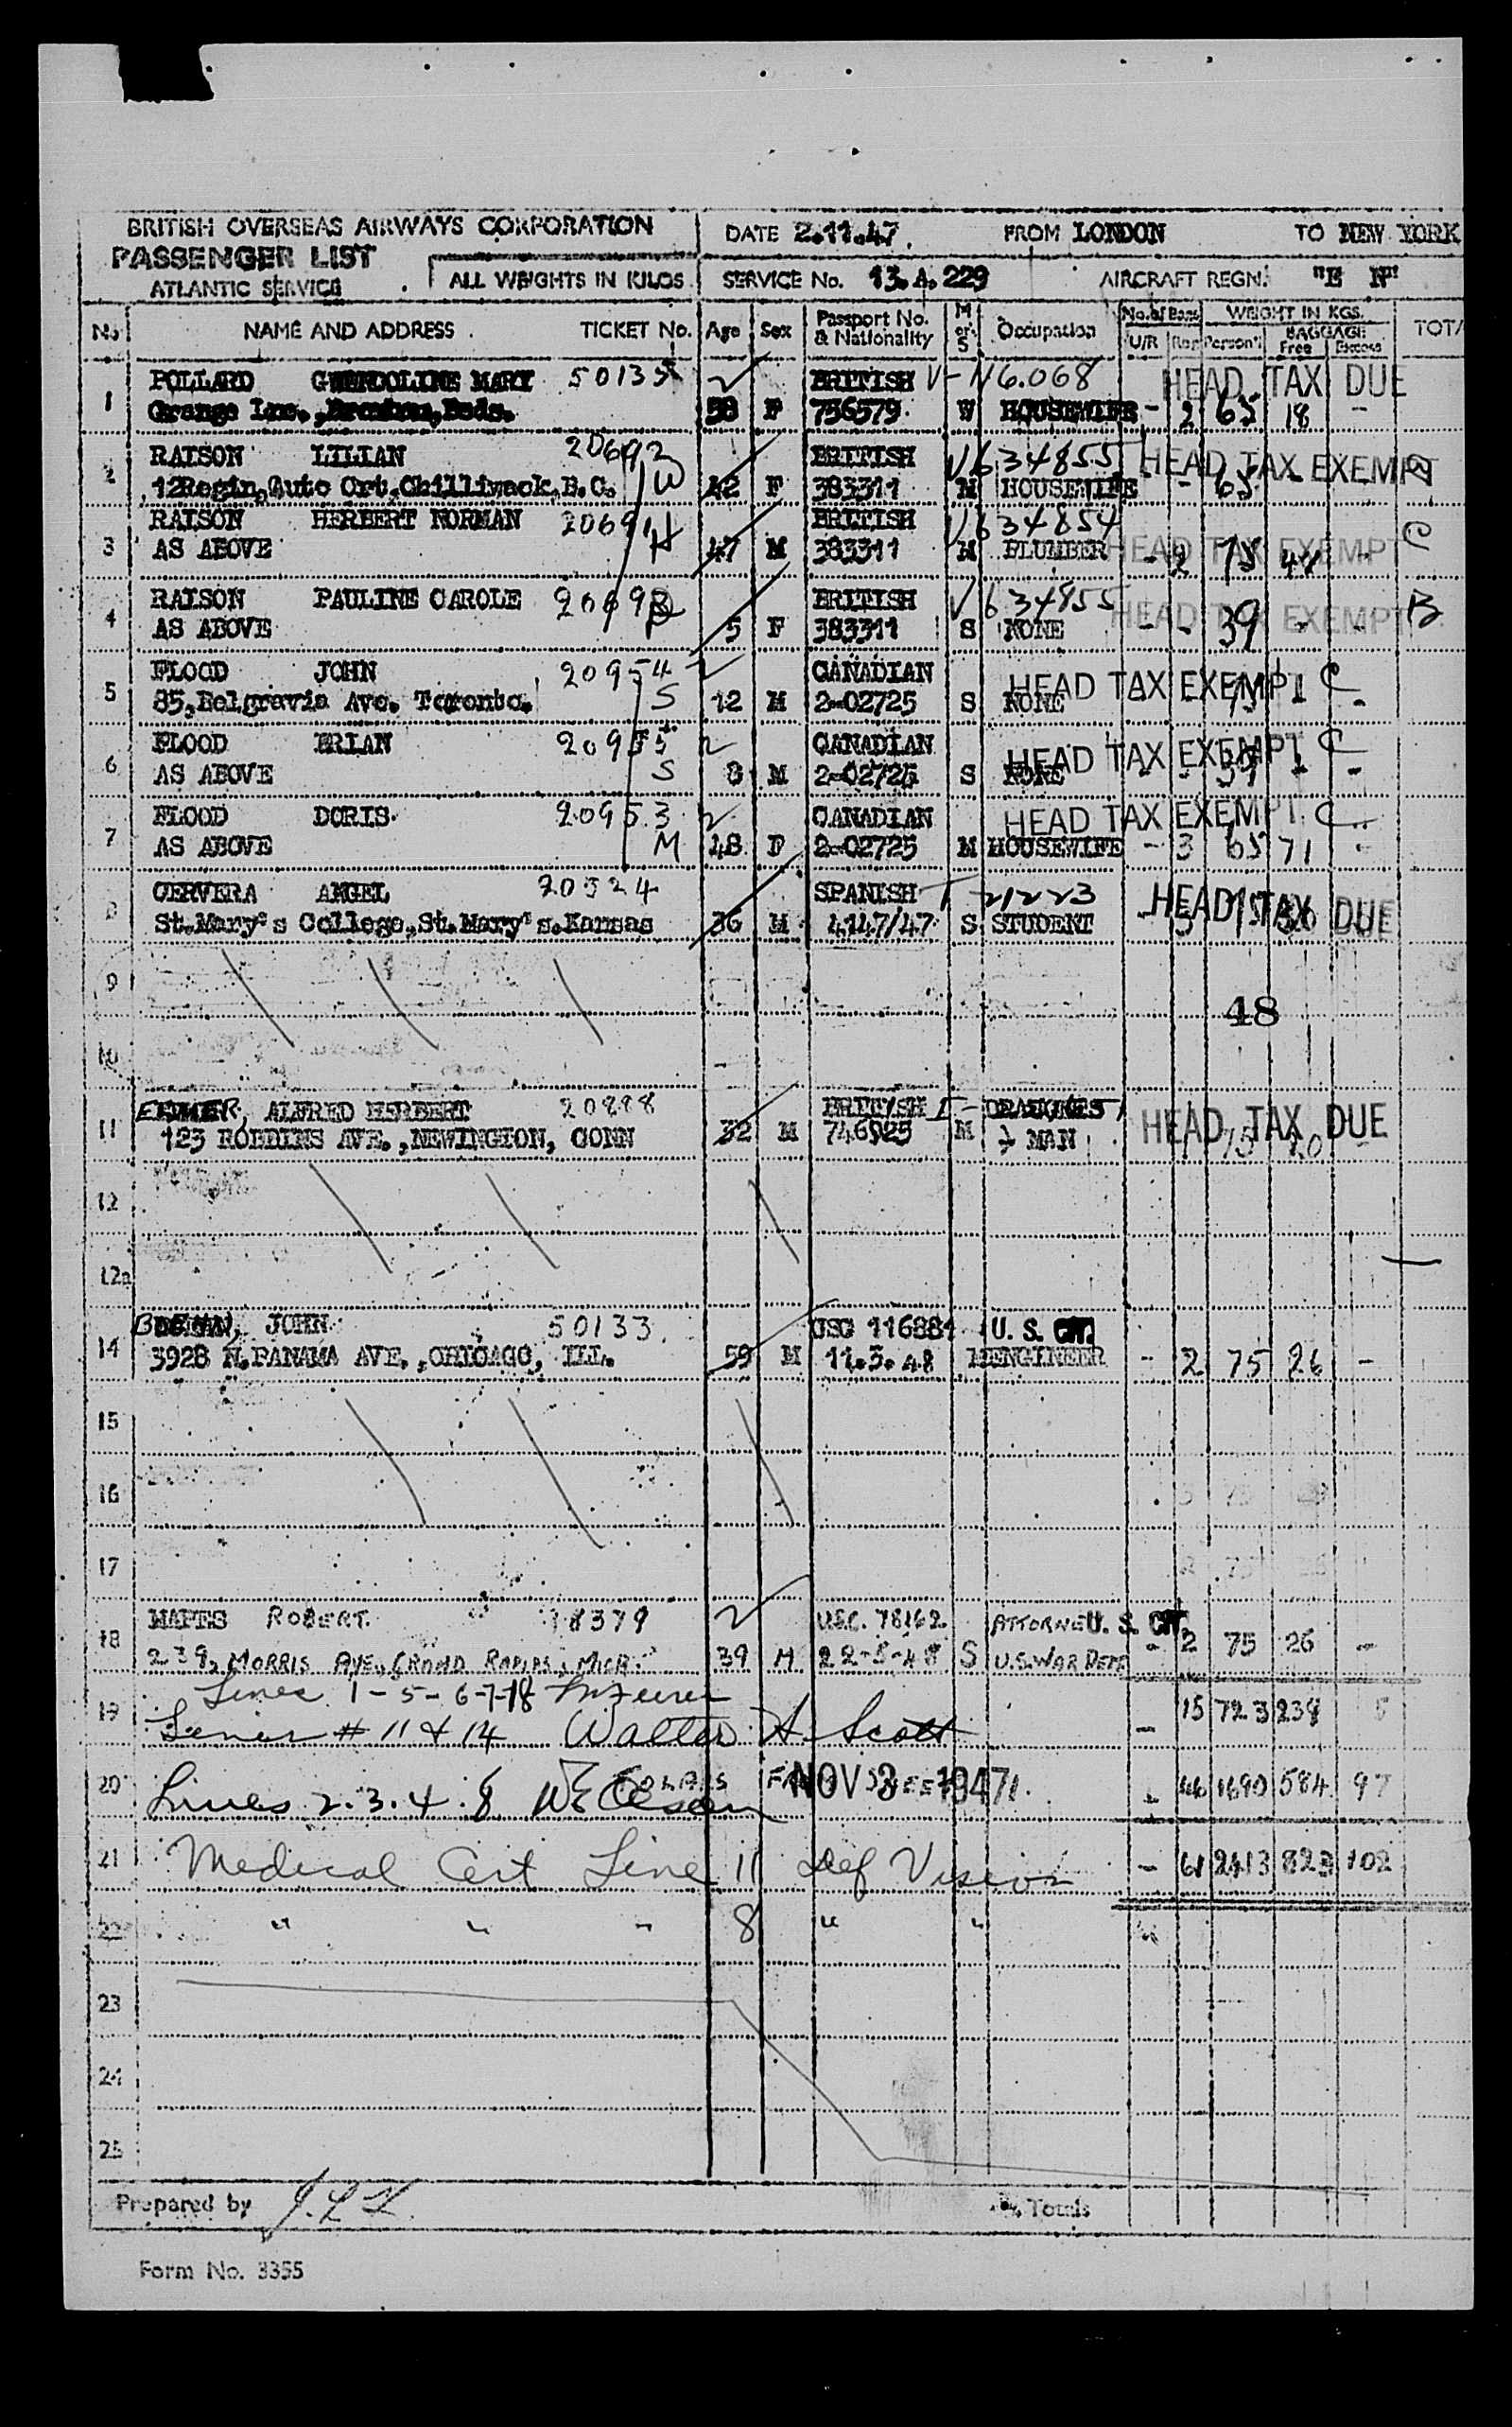 BRITISH OVERSEAS AIRWAYS CORPORATION
PASSENGER LIST
ATLANTIC SERVICE
ALL WEIGHTS IN KILOS
DATE 2.11.47. FROM LONDON TO NEW YORK
SERVICE No. 13.A.229 AIRCRAFT REGN. "E F"
No NAME AND ADDRESS TICKET No. Age Sex Passport No. & Nationality M or S Occupation No. of Bags U/R Reg WEIGHT IN KGS. Person'l BAGGAGE Free Excess TOTA
1 POLLARD GWENDOLINE MARY 50135 BRITISH HEAD TAX DUE
Grange Lne., Beds. 58 F 756579 W HOUSEWIFE - 2 65 18 -
2 RAISON LILIAN 20692 BRITISH V634855 HEAD TAX EXEMPT
12Regin,Auto Crt,Chilliwack,B.C. W 42 F 383311 M HOUSEWIFE - 65
3 RAISON HERBERT NORMAN 20691 BRITISH V634854
AS ABOVE H 47 M 383311 M PLUMBER HEAD TAX EXEMPT C
- 2 75
4 RAISON PAULINE CAROLE BRITISH V634855 HEAD TAX EXEMPT B
AS ABOVE 5 F 383311 S NONE - - 39 - -
5 FLOOD JOHN 20954 CANADIAN HEAD TAX EXEMPT C
85,Belgravia Ave. Toronto. S 12 M 2-02725 S NONE -
6 FLOOD BRIAN 20955 CANADIAN HEAD TAX EXEMPT C
AS ABOVE S 8 M 2-02725 S NONE - - - -
7 FLOOD DORIS 20953 CANADIAN HEAD TAX EXEMPT C
AS ABOVE M 48 F 2-02725 M HOUSEWIFE - 3 65 71 -
8 CERVERA ANGEL 20324 SPANISH T 21223 HEAD TAX DUE
St.Mary's College,St.Mary's.Kansas 36 M 4147/47 S STUDENT
9
48
10
11 ALFRED HERBERT 20888 BRITISH HEAD TAX DUE
123 ROBBINS AVE.,NEWINGTON, CONN 32 M 746925 M MAN
12
12a
14 JOHN 50133 USC 116881 U. S. CIT.
3928 N.PANAMA AVE.,CHICAGO, ILL. 59 M 11.3.48 M ENGINEER - 2 75 26 -
15
16
17
18 MAPES ROBERT. 18379 U.S.C. 78162. ATTORNE U. S. CIT.
239, MORRIS AVE., GRAND RAPIDS, MICH. 39 M 22-5-48 S U.S.WAR DEPT - 2 75 26 -
Lines 1-5-6-7-18
19 Lines # 11 & 14 Walter A. Scott - 15 723 239 5
20 Lines 2.3.4.8 NOV 3 1947 46 1690 584 97
21 Medical Cert Line 11 Def Vision - 61 2413 823 102
22 " " " 8 " "
23
24
25
Prepared by Totals
Form No. 3355